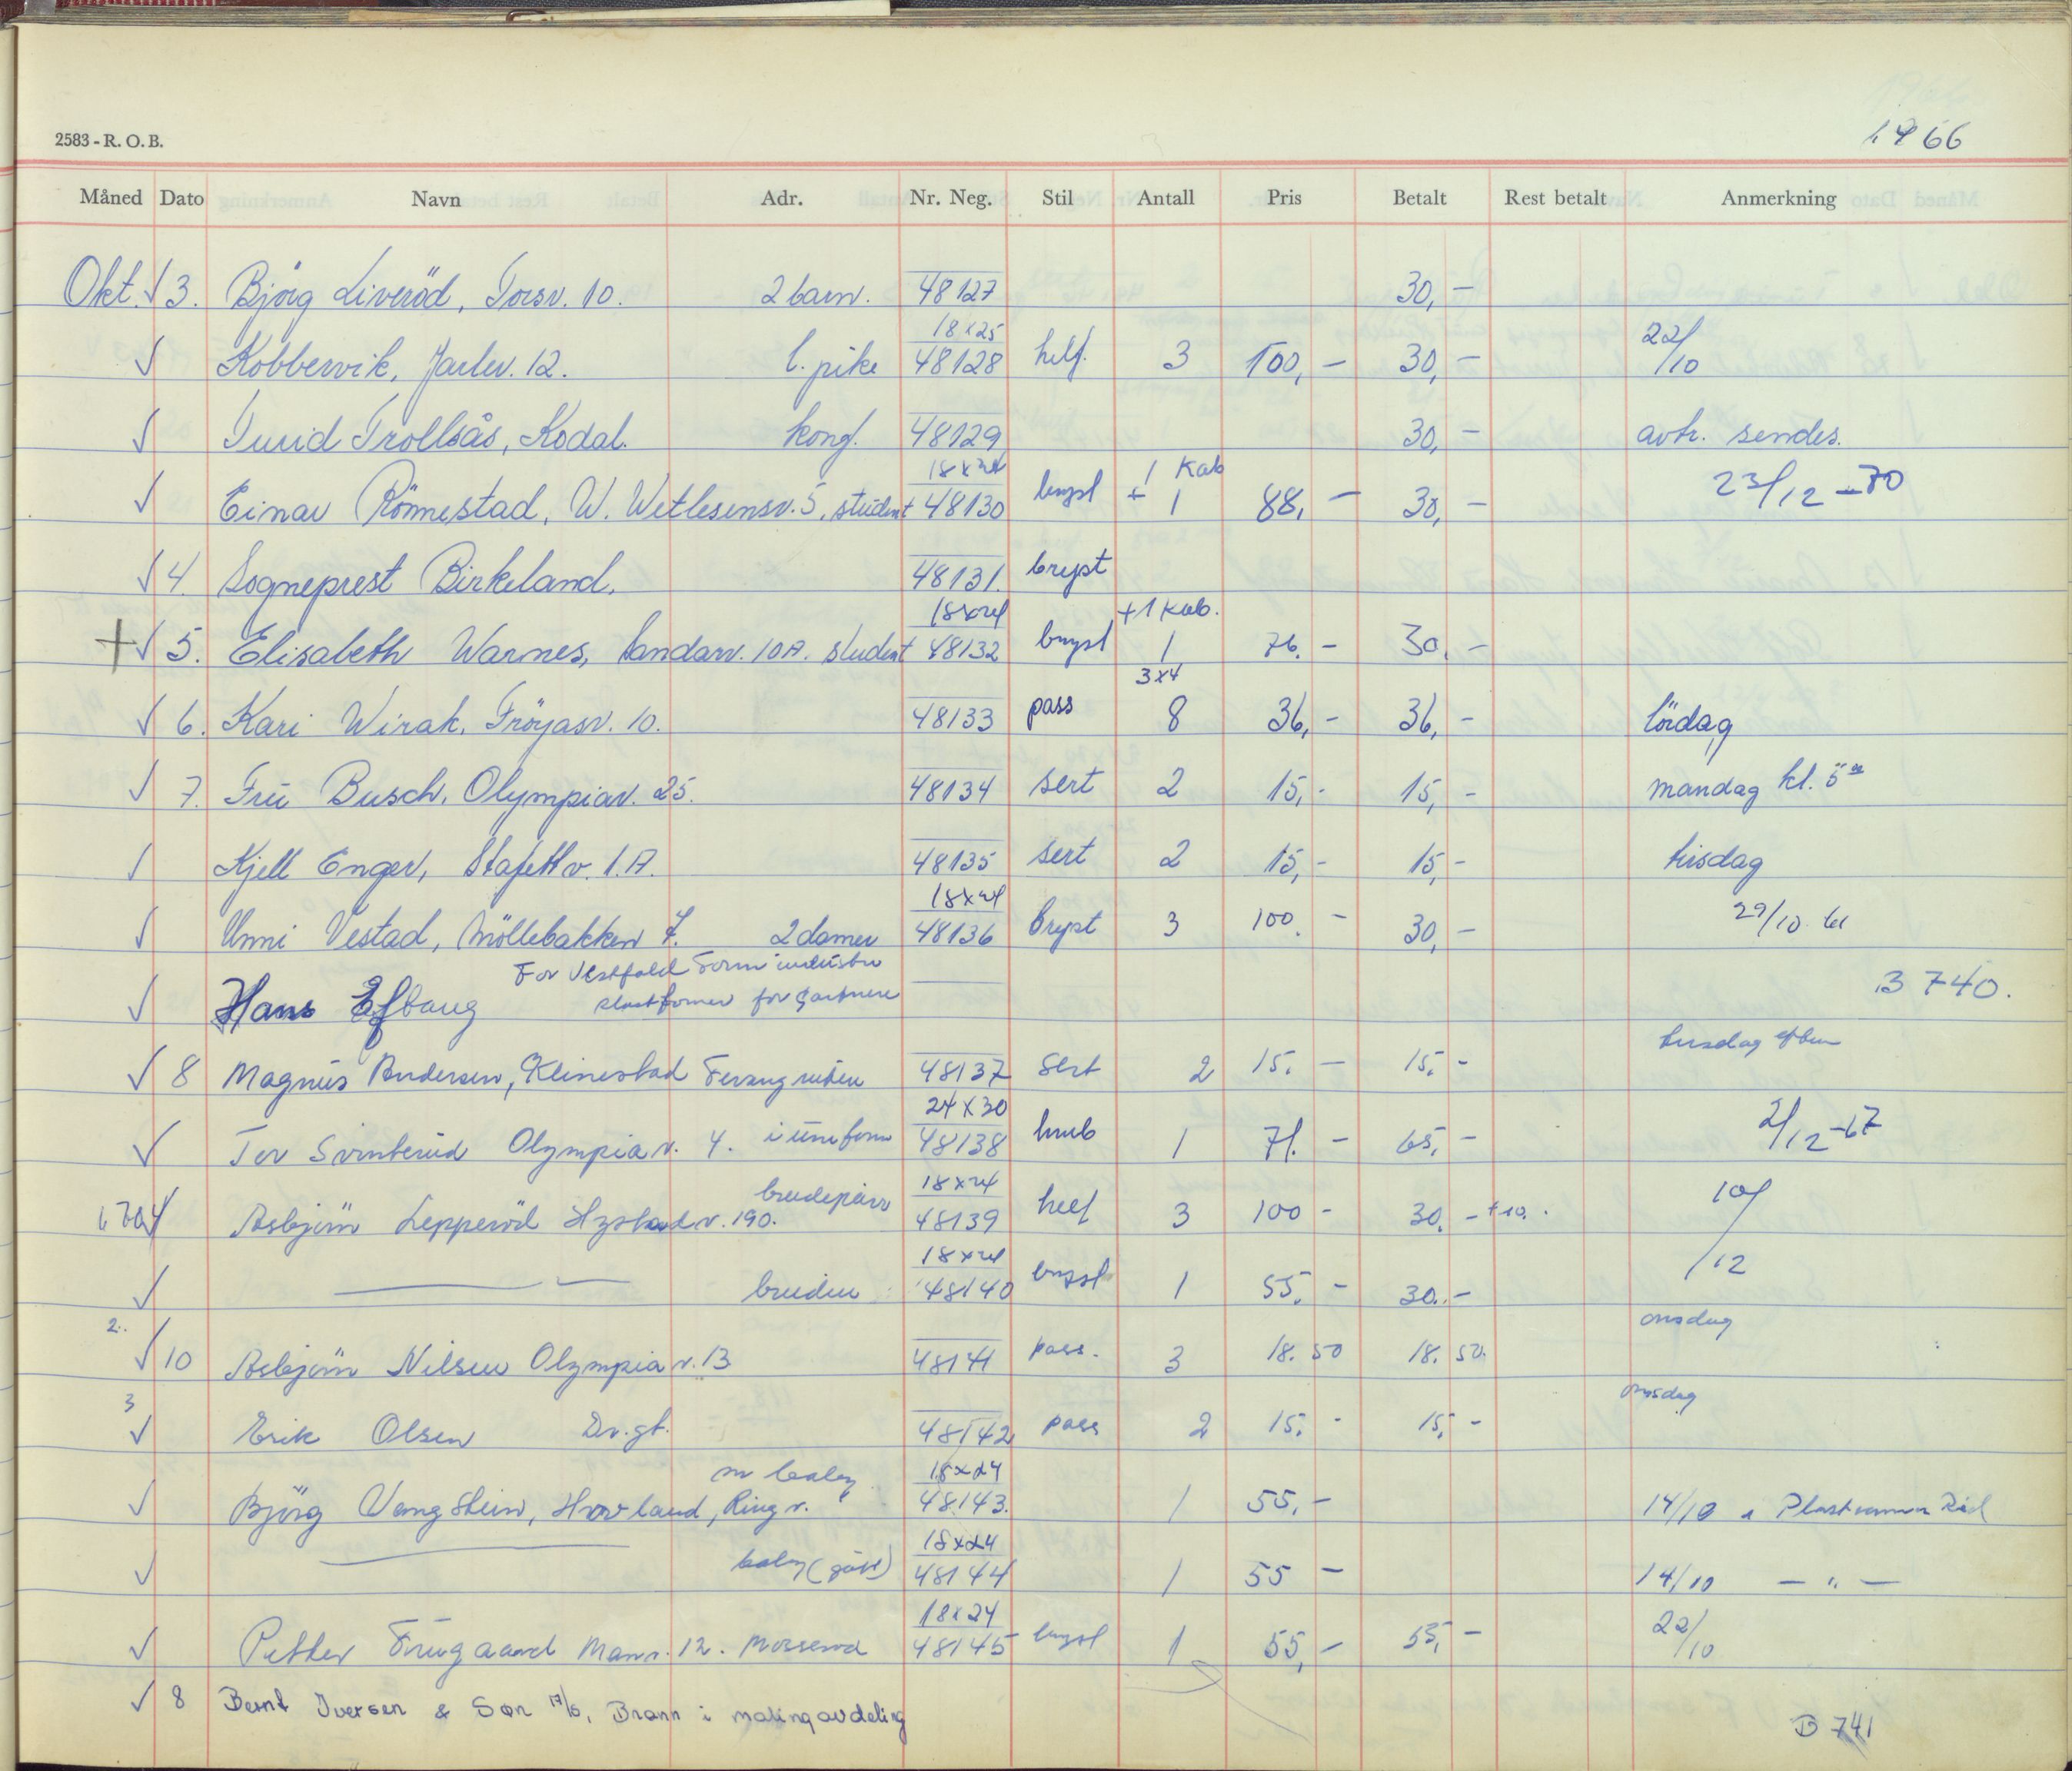 2583 - R. O. B.
1966
Måned Dato Navn Adr. Nr. Neg. Stil Antall Pris Betalt Rest betalt Anmerkning
Okt. √ 3. Björg Liveröd, Torsv. 10. 2 barn. 48127 30,-
18x25
√ Kobbervik, Jarlev. 12. l. pike 48128 helf. 3 100,- 30,- 22/10
√ Turid Trollsås, Kodal. konf. 48129 30,- avtr. sendes.
18x24 1 Kab
√ Einar Rönnestad, W. Wetlesensv. 5, student 48130 bryst + 1 88,- 30,- 23/12-70
√ 4. Sogneprest Birkeland. 48131. bryst
18x24 +1 Kab.
+ √ 5. Elisabeth Warnes, Sandarv. 10A. student 48132 bryst 1 76.- 30,-
3x4
√ 6. Kari Wirak, Fröyasv. 10. 48133 pass 8 36,- 36,- lördag
√ 7. Fru Busch, Olympiav. 25. 48134 sert 2 15,- 15,- mandag kl. 5
√ Kjell Enger, Stafettv. 1.A. 48135 sert 2 15,- 15,- tirsdag
18x24
√ Unni Vestad, Möllebakken 7. 2 damer 48136 bryst 3 100.- 30,- 29/10
For Vestfold Form industri
√ Hans for Gartnere B 740.
tirsdag
√ 8 Magnus Andersen, Klinestad 48137 Sert 2 15.- 15.-
24x30
√ Tor Olympiav. 4. i uniform 48138 1 71.- 65,- 2/12-67
brudepar 18x24
Asbjörn Lepperöd Hystadv. 190. 48139 helf 3 100- 30.- +10. 10/12
18x24
√ — — bruden 48140 bryst 1 55.- 30.-
2. onsdag
√ 10 Asbjörn Nilsen Olympiav. 13 48141 pass. 3 18.50 18.50
3 onsdag
√ Erik Olsen Dr.gt. 48142 pass 2 15.- 15,-
m baby 18x24
√ Björg Vangstein, Hovland, Ringv. 48143. 1 55,- 14/10
18x24
√ — baby 48144 1 55- 14/10 — " —
18x24
√ Petter 12. 48145 bryst 1 55,- 55,- 22/10
√ 8 Bernt Iversen & Søn A/S, Brann i malingavdeling B 741